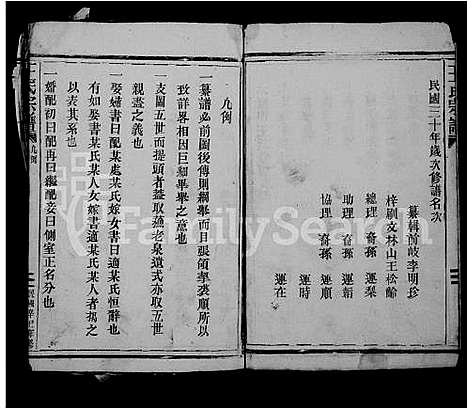 王氏宗譜
民國三十年歲次修譜名次
纂輯前岐李明珍
梓刷文林山王松齡
總理 裔孫 運梨
助理 裔孫 運韜
協理 裔孫 運順
運時
運在
凡例
一纂譜必前圖後傳則綱舉而目張領挈裘順所以
致詳畧相因巨細畢舉之意也
一支圖五世而提頭者蓋取蘇老泉遺式亦取五世
親盡之義也
一娶婦書曰配某處某氏嫁女書曰適某氏恒辭也
有如娶書某氏某人女嫁書適某氏某人者撝之
以表其系也
一婚配初曰配再曰繼配妾曰側室正名分也
王氏宗譜
凡例
一
民國辛巳年修
FamilySearch